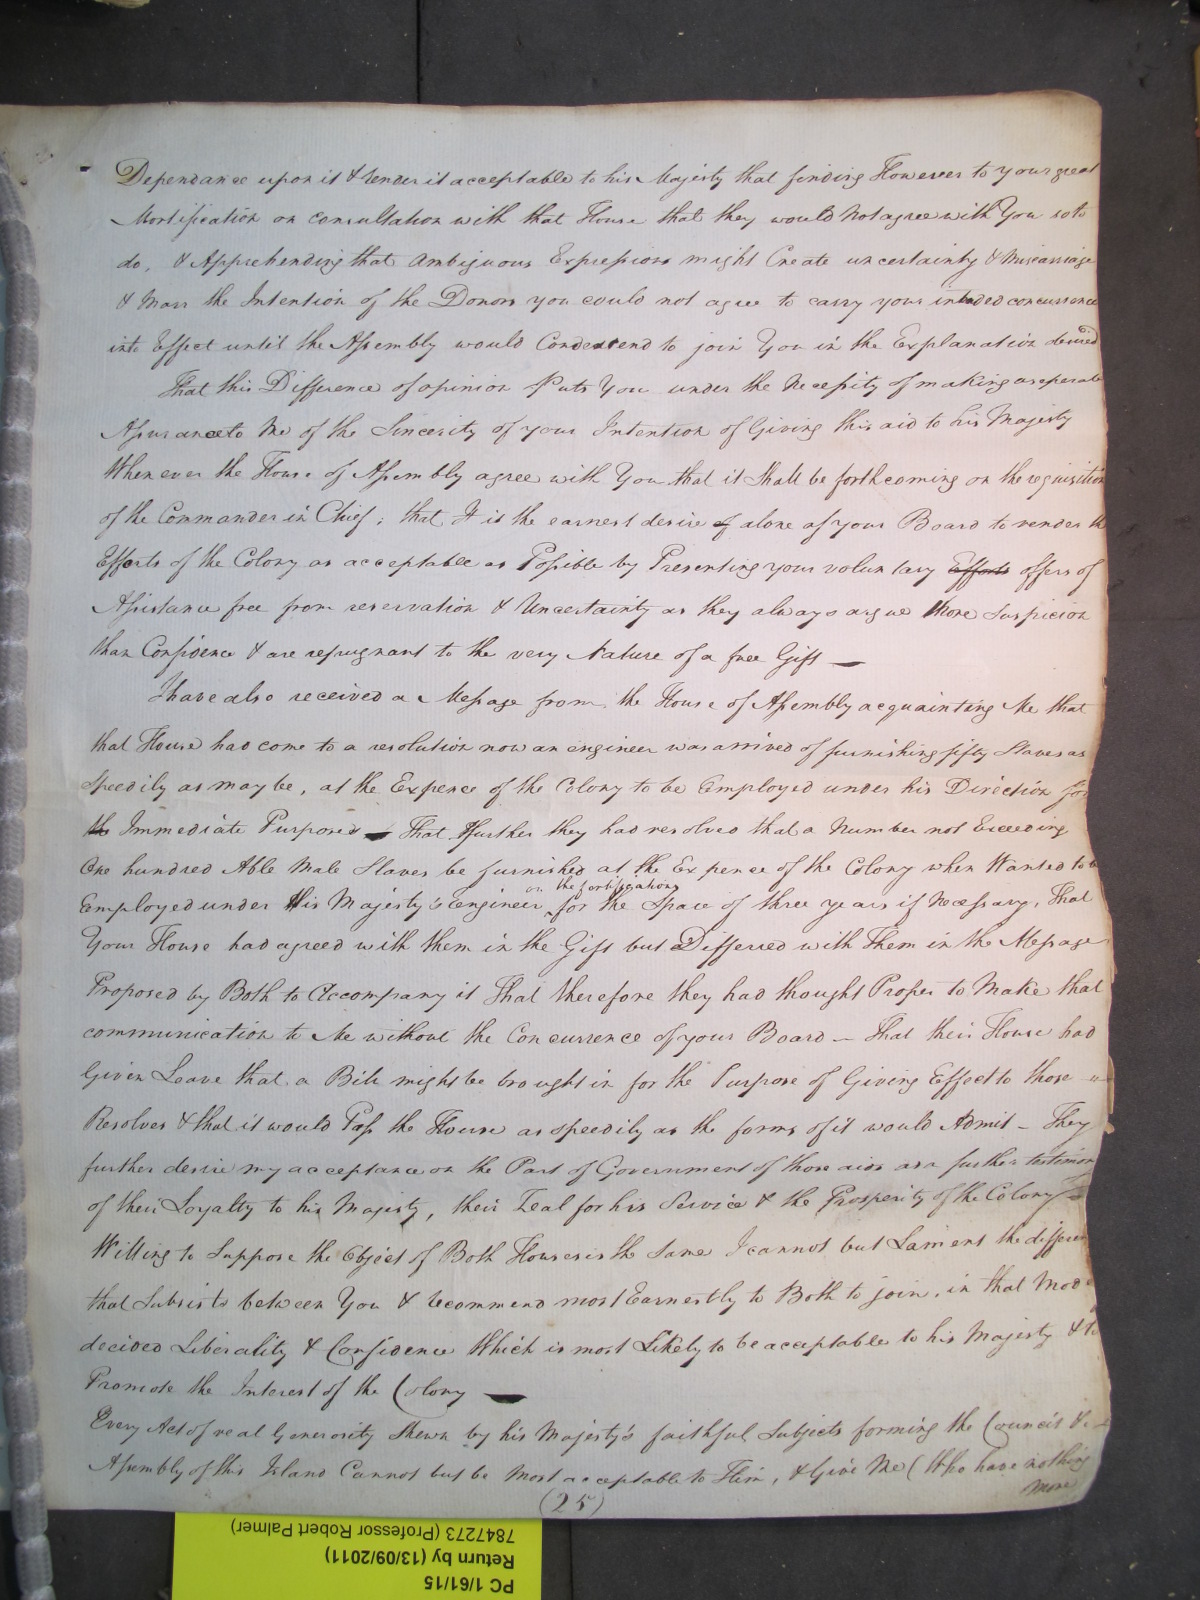 Dependance upon it & render it acceptable to his Majesty that finding However to your great
Mortification on consultation with that House that they would Not agree with You so to
do, & Apprehending that Ambiguous Expressions might Create uncertainty & Miscarriage
& Marr the Intention of the Donors you could not agree to carry your intended concurrence
into Effect until the Assembly would Condescend to join You in the Explanation desired
That this Difference of opinion Puts You under the Necessity of making a seperate
Assurance to Me of the Sincerity of your Intention of Giving this aid to his Majesty
Whenever the House of Assembly agree with You that it Shall be forthcoming on the requisition
of the Commander in Chief; that It is the earnest desire of alone of your Board to render the
Efforts of the Colony as acceptable as Possible by Presenting your voluntary Efforts offers of
Assistance free from reservation & Uncertainty as they always argue More Suspicion
than Confidence & are repugnant to the very Nature of a free Gift —
I have also received a Message from the House of Assembly acquainting Me that
that House had come to a resolution now an engineer was arrived of furnishing fifty Slaves as
speedily as may be, at the Expence of the Colony to be Employed under his Direction for
the Immediate Purposes — That further they had resolved that a Number not Exceeding
One hundred Able Male Slaves be furnished at the Expence of the Colony when Wanted to be
on the fortifications
Employed under His Majesty's engineer for the Space of three years if Necessary, That
Your House had agreed with them in the Gift but Differred with Them in the Message
Proposed by Both to Accompany it That therefore they had thought Proper to Make that
communication to Me without the Concurrence of your Board – That their House had
Given Leave that a Bill might be brought in for the Purpose of Giving Effect to those
Resolves & that it would Pass the House as speedily as the forms of it would Admit – They
further desire my acceptance on the Part of Government of those aids as a further testimony
of their Loyalty to his Majesty, their Zeal for his Service & the Prosperity of the Colony
Willing to Suppose the Object of Both Houses is the Same I cannot but Lament the differen
that Subsists between You & recommend most Earnestly to Both to join, in that Mode
decided Liberality & Confidence Which is most Likely to be acceptable to his Majesty & to
Promote the Interest of the Colony —
Every Act of real Generosity Shewn by his Majesty's faithful Subjects forming the Council &
Assembly of this Island Cannot but be Most acceptable to Him, & Give Me (Who have nothing
more
(25)
7847273 (Professor Robert Palmer)
Return by (13/09/2011)
PC 1/61/15